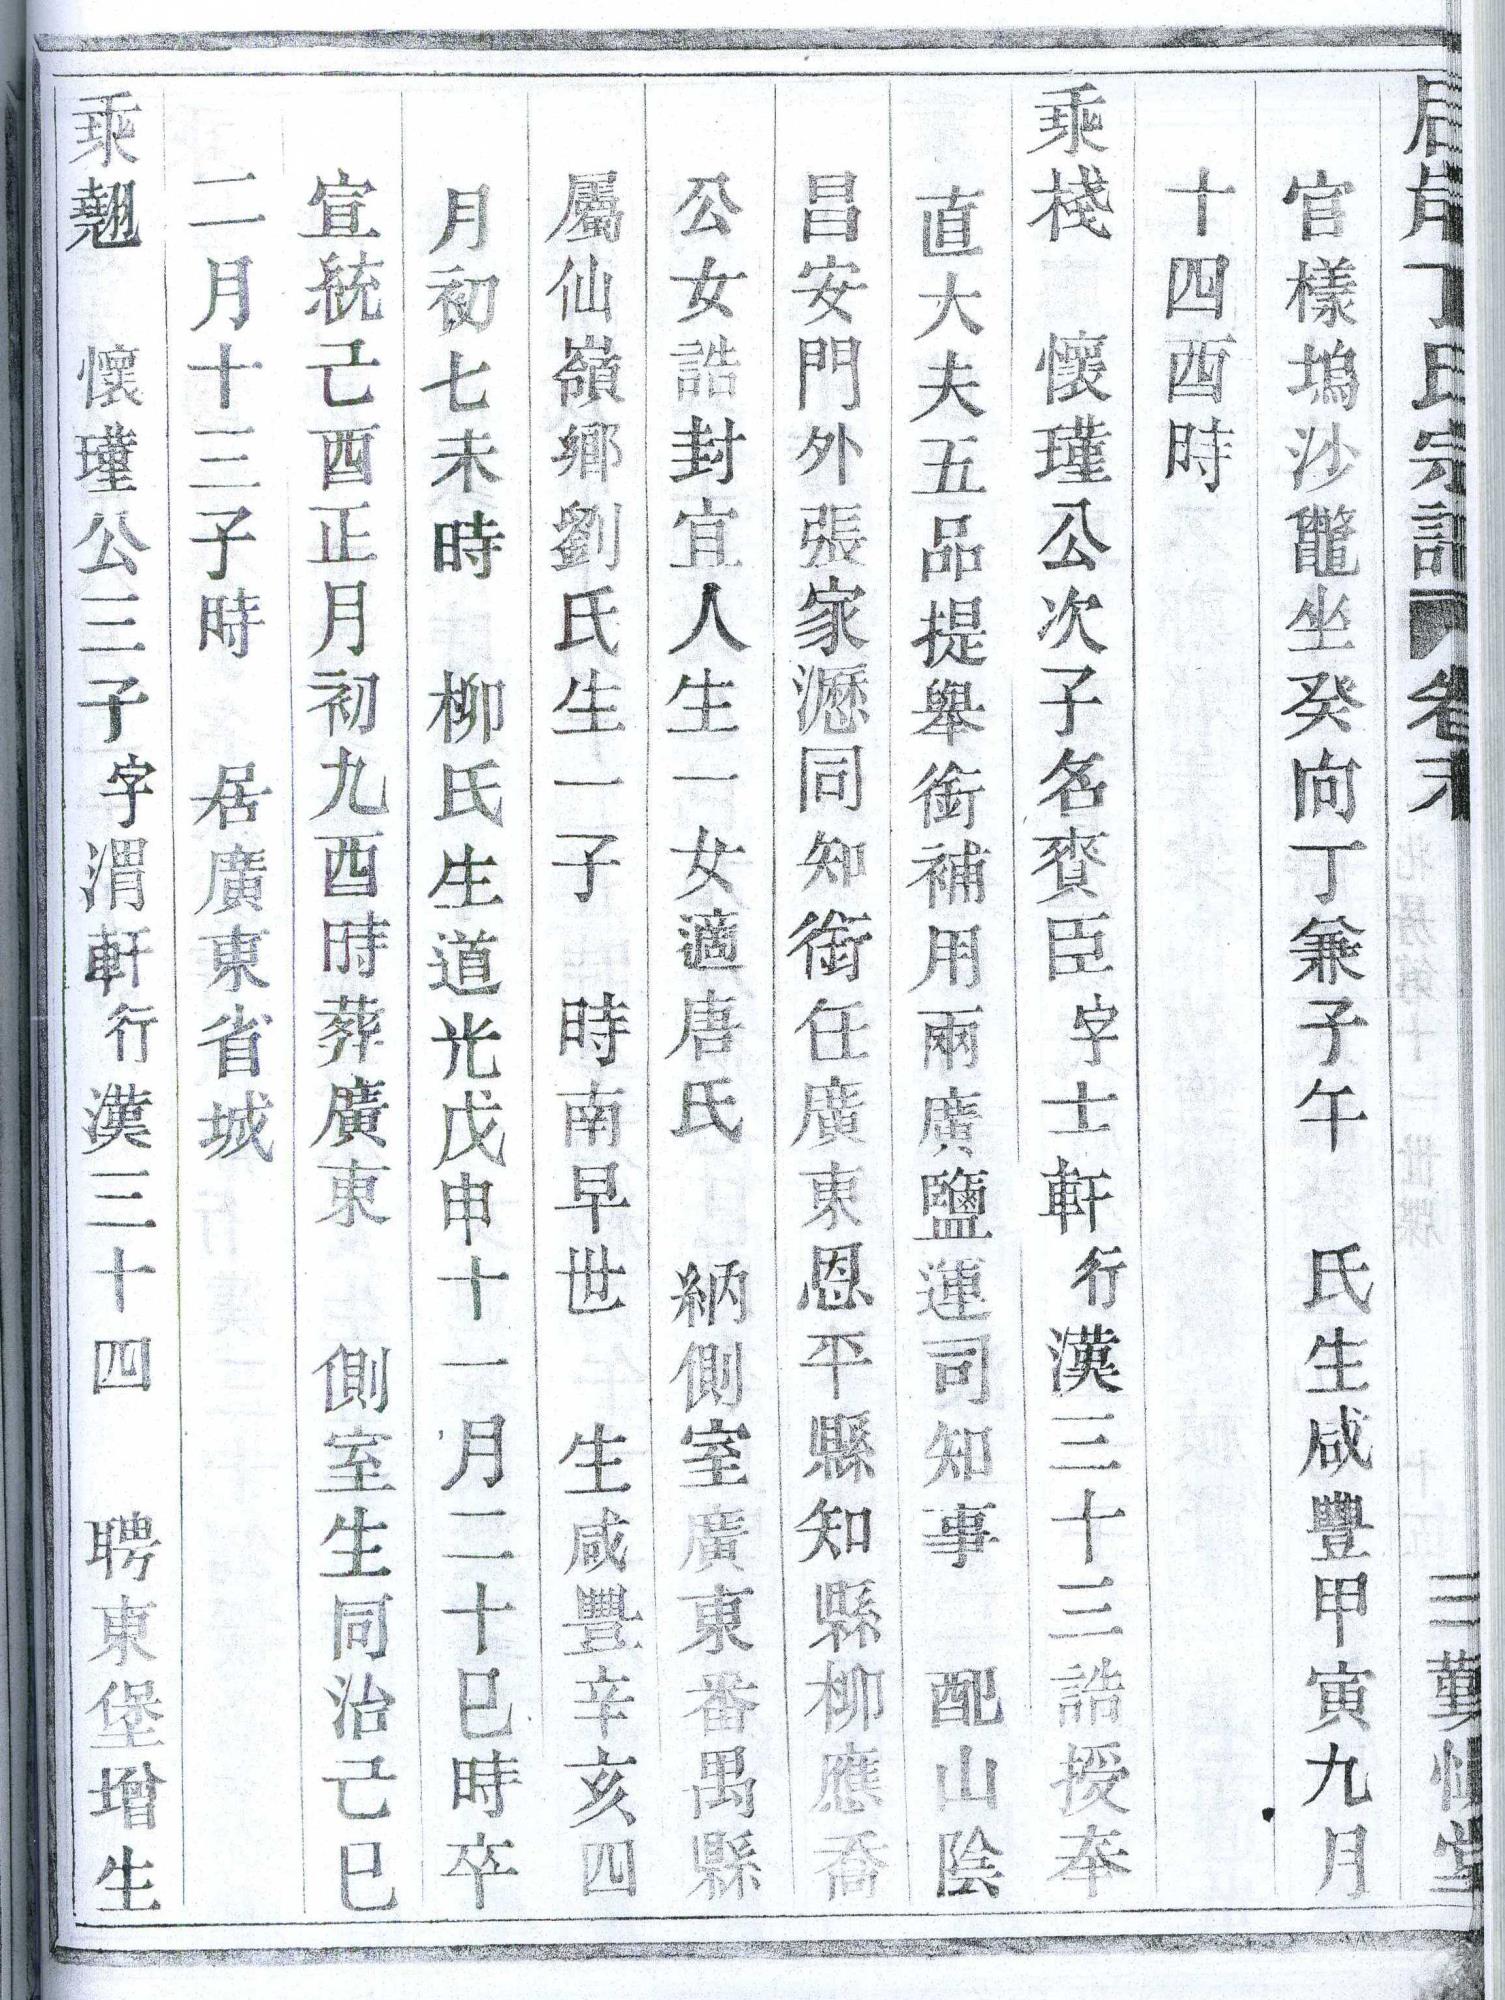 丁氏宗譜 卷末 三 勤慎堂
官樣塢沙鼈坐癸向丁兼子午 氏生咸豐甲寅九月
十四酉時
乘棧 懷瑾公次子名賚臣字士軒行漢三十三誥授奉
直大夫五品提舉銜補用兩廣鹽運司知事 配山陰
昌安門外張家瀝同知銜任廣東恩平縣知縣柳應喬
公女誥封宜人生一女適唐氏 納側室廣東番禺縣
屬仙嶺鄉劉氏生一子 時南早世 生咸豐辛亥四
月初七未時 柳氏生道光戊申十一月二十巳時卒
宣統己酉正月初九酉時葬廣東 側室生同治己巳
二月十三子時 居廣東省城
乘翹 懷瑾公三子字渭軒行漢三十四 聘東堡增生